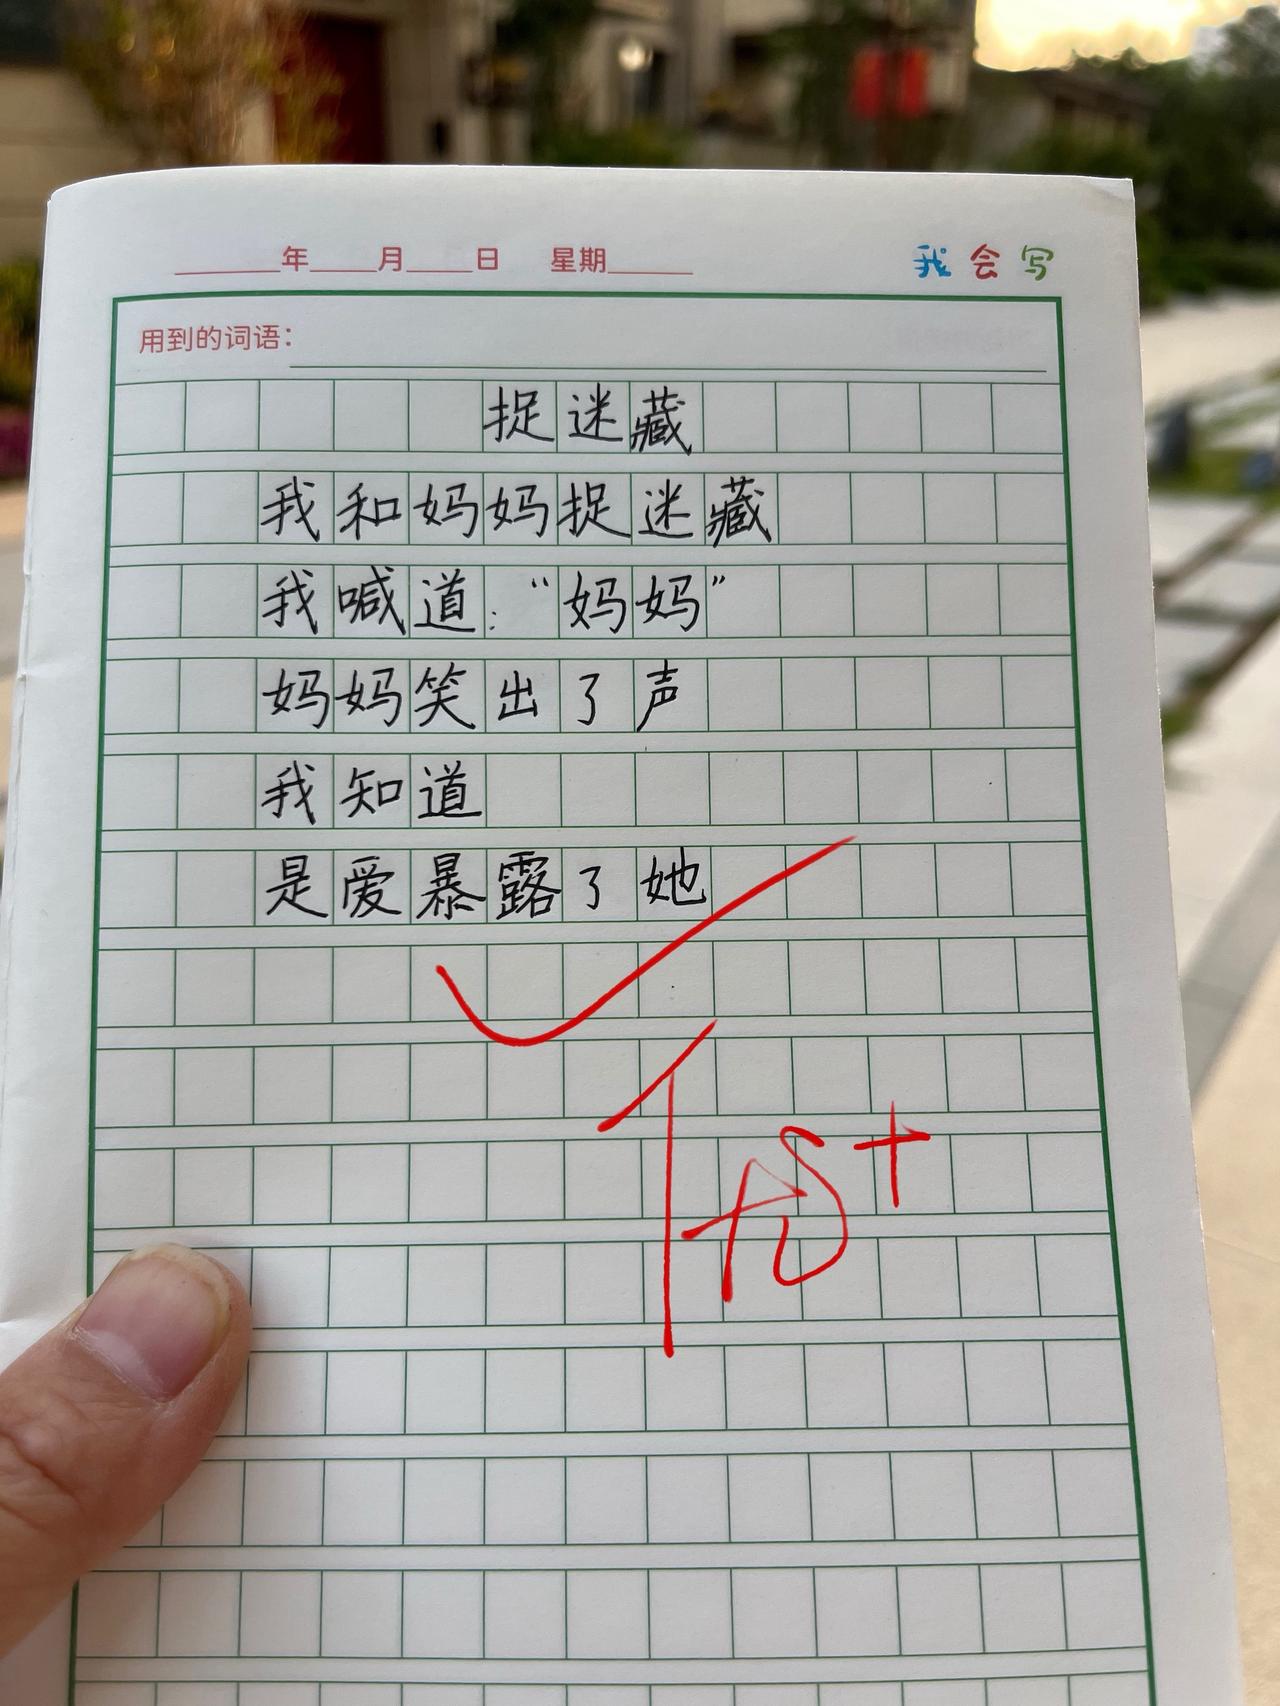 ____年____月____日 星期____ 我会写
用到的词语:
捉迷藏
我和妈妈捉迷藏
我喊道:“妈妈”
妈妈笑出了声
我知道
是爱暴露了她
优+